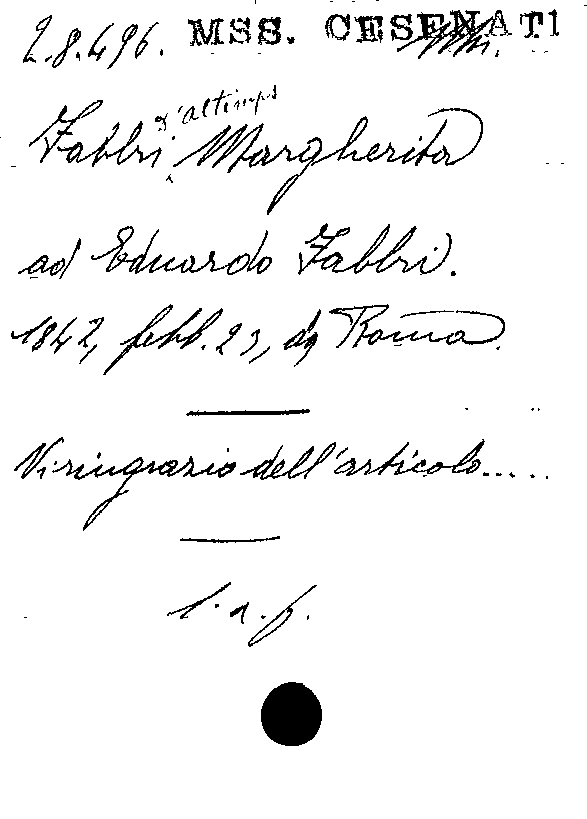 2.8.496. MSS. CESENATI
d'altimps
Fabbri Margherita
ad Eduardo Fabbri.
1842, febb. 23, da Roma.
Vi ringrazio dell'articolo.....
l. a. f.